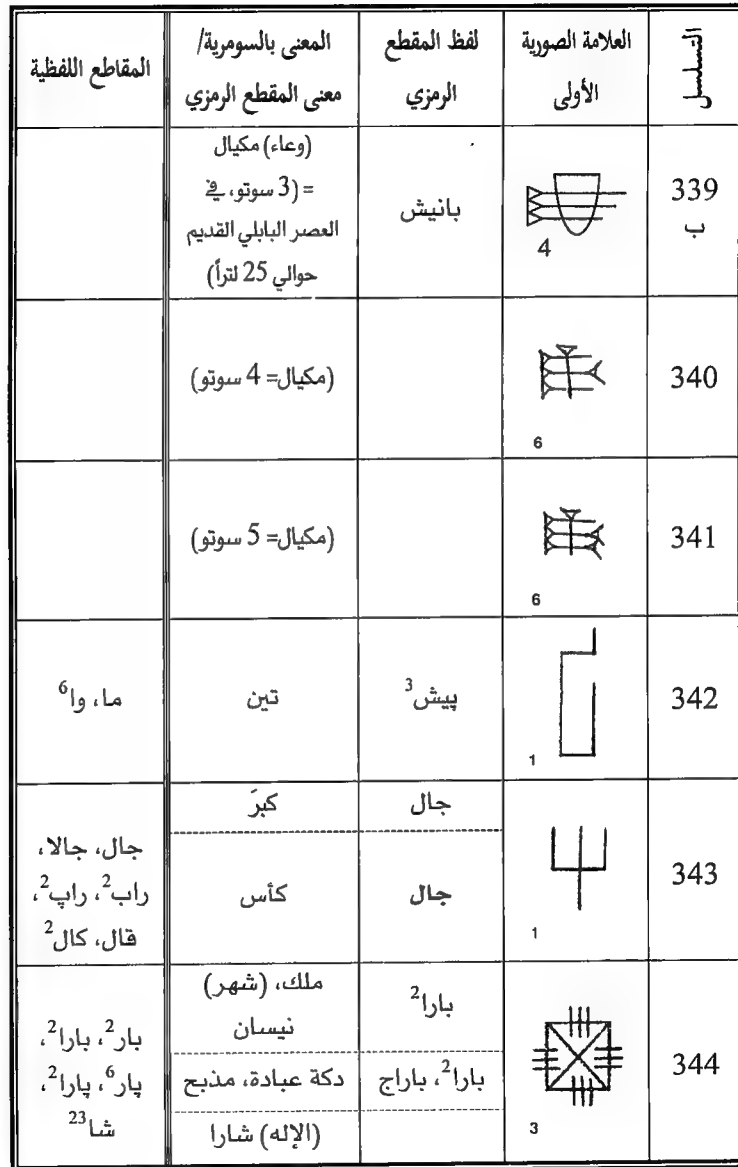 التسلسل
العلامة الصورية
الأولى
لفظ المقطع
الرمزي
المعنى بالسومرية/
معنى المقطع الرمزي
المقاطع اللفظية
339
ب
4
بانيش
(وعاء) مكيال
= (3 سوتو، في
العصر البابلي القديم
حوالي 25 لتراً)
340
6
(مكيال= 4 سوتو)
341
6
(مكيال= 5 سوتو)
342
1
پيش³
تين
ما، وا⁶
343
1
جال
كبرَ
جال
كأس
جال، جالا،
راب²، راپ²،
قال، كال²
344
3
بارا²
ملك، (شهر)
نيسان
بارا²، باراج
دكة عبادة، مذبح
(الإله) شارا
بار²، بارا²،
پار⁶، پارا²،
شا²³